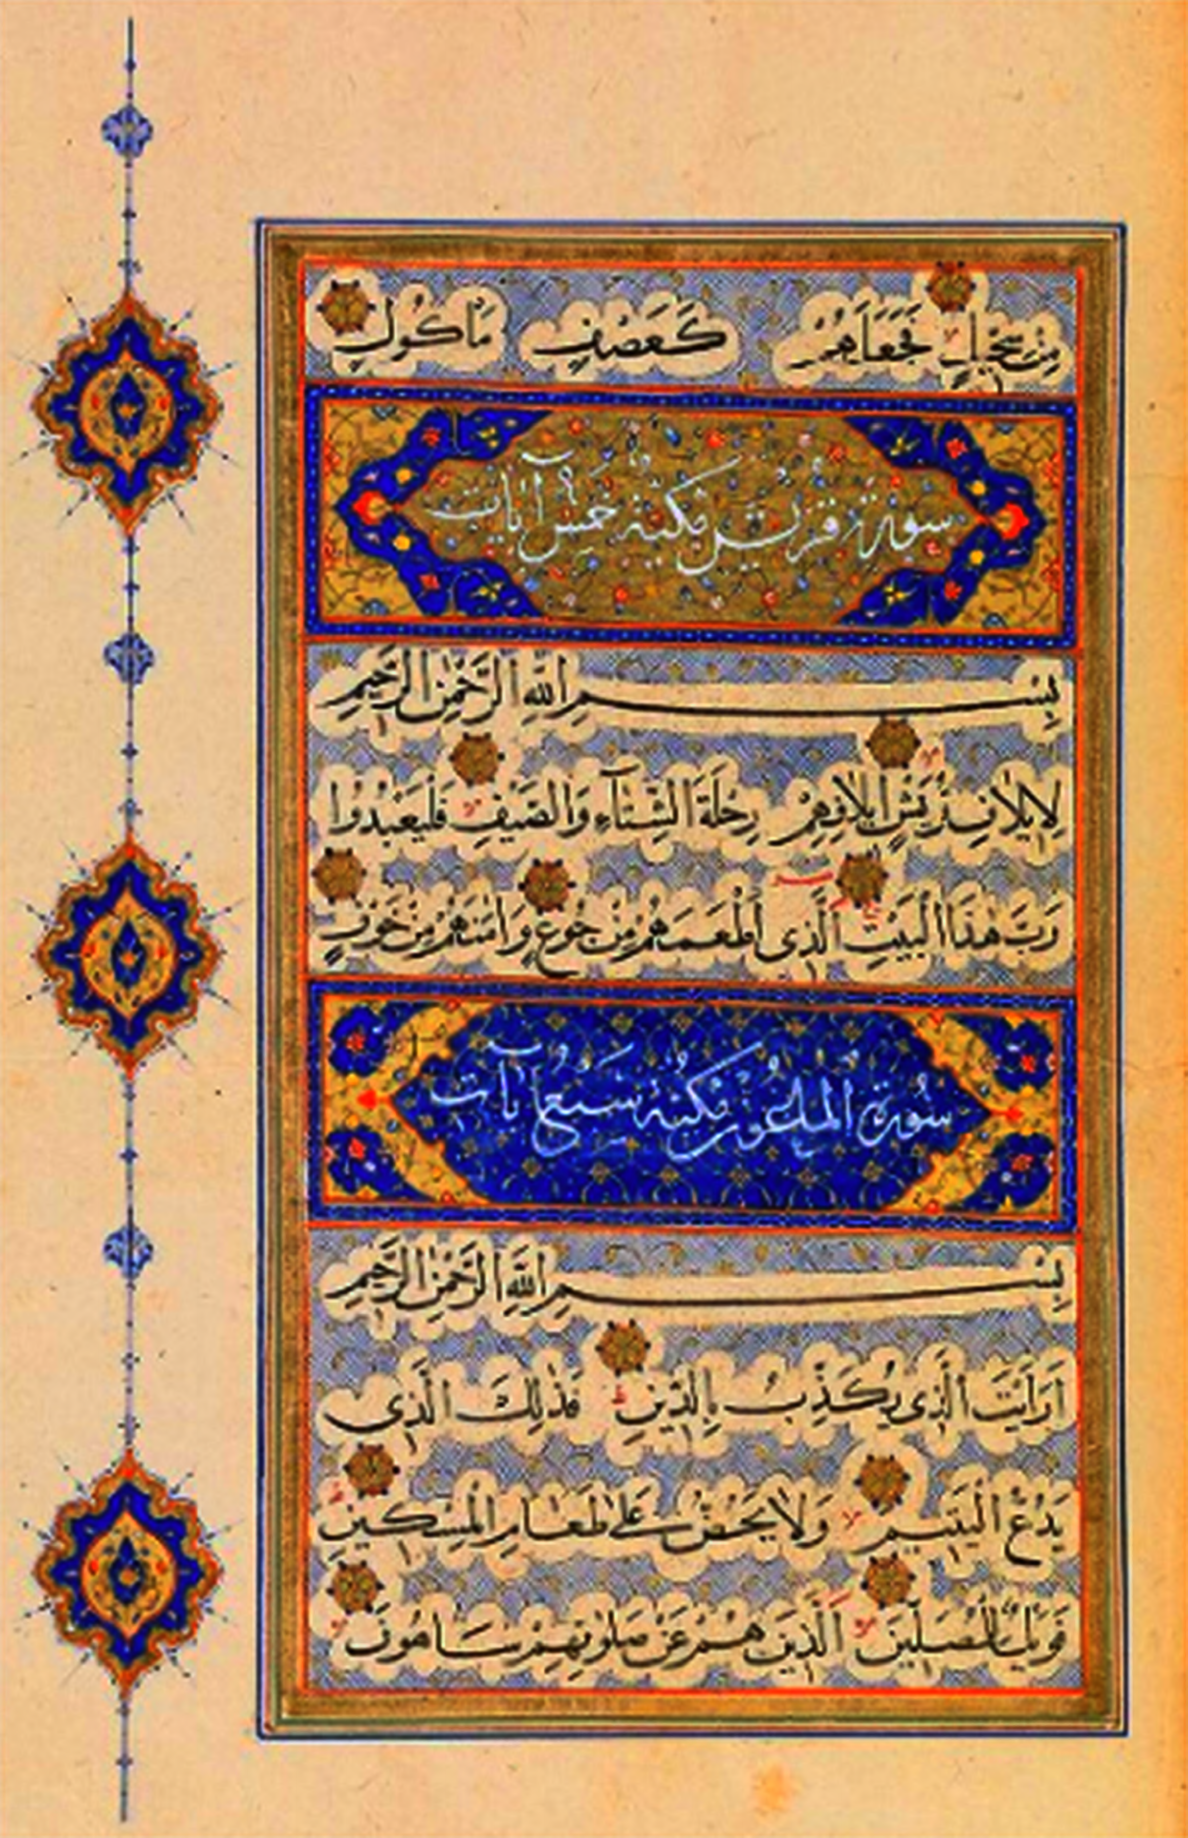 مِنْ سِجِّيلٍ فَجَعَلَهُمْ كَعَصْفٍ مَأْكُولٍ
سورة قريش مكية خمس آيات
بِسْمِ اللّٰهِ الرَّحْمٰنِ الرَّحِيمِ
لِإِيلَافِ قُرَيْشٍ إِيلَافِهِمْ رِحْلَةَ الشِّتَآءِ وَالصَّيْفِ فَلْيَعْبُدُوا
رَبَّ هٰذَا الْبَيْتِ الَّذِى أَطْعَمَهُمْ مِنْ جُوعٍ وَاٰمَنَهُمْ مِنْ خَوْفٍ
سُورة الماعون مكية سبع آيات
بِسْمِ اللّٰهِ الرَّحْمٰنِ الرَّحِيمِ
اَرَاَيْتَ الَّذِى يُكَذِّبُ بِالدِّينِ فَذٰلِكَ الَّذِى
يَدُعُّ الْيَتِيمَ وَلَا يَحُضُّ عَلٰى طَعَامِ الْمِسْكِينِ
فَوَيْلٌ لِلْمُصَلِّينَ الَّذِينَ هُمْ عَنْ صَلٰوتِهِمْ سَاهُونَ